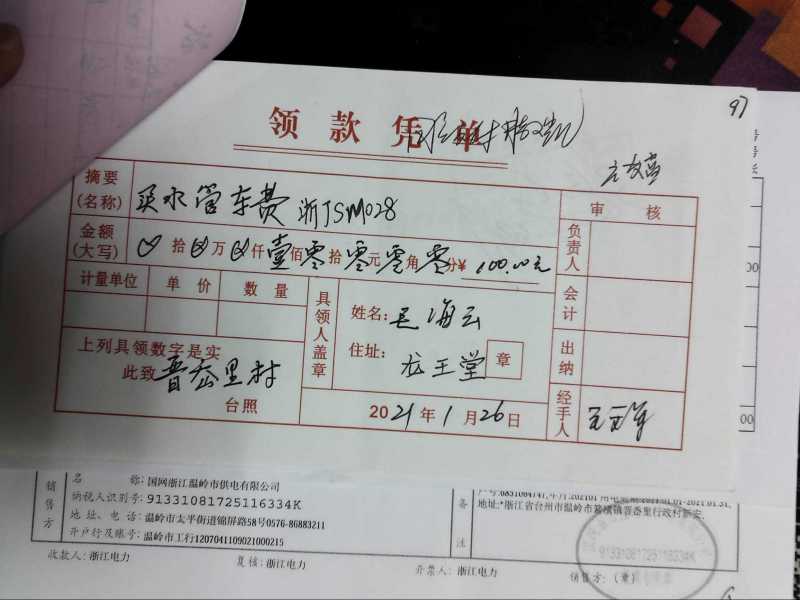 97
领款凭单
摘要
(名称)
买水管车费 浙JSM028
审核
金额
(大写)
拾 万 仟壹佰零拾零元零角零分¥ 100.00元
负责人
计量单位 单价 数量
具领人盖章
姓名: 海云
会计
上列具领数字是实
住址: 龙王堂 章
出纳
此致 晋岙里村
台照
2021年1月26日
经手人
销售方
名 称: 国网浙江温岭市供电有限公司
纳税人识别号: 91331081725116334K
地址、电话: 温岭市太平街道锦屏路58号0576-86883211
开户行及账号: 温岭市工行1207041109021000215
备注
地址:*浙江省台州市温岭市箬横镇晋岙里行政村新安,
91331081725116334K
收款人: 浙江电力 复核: 浙江电力 开票人: 浙江电力 销售方: (章)